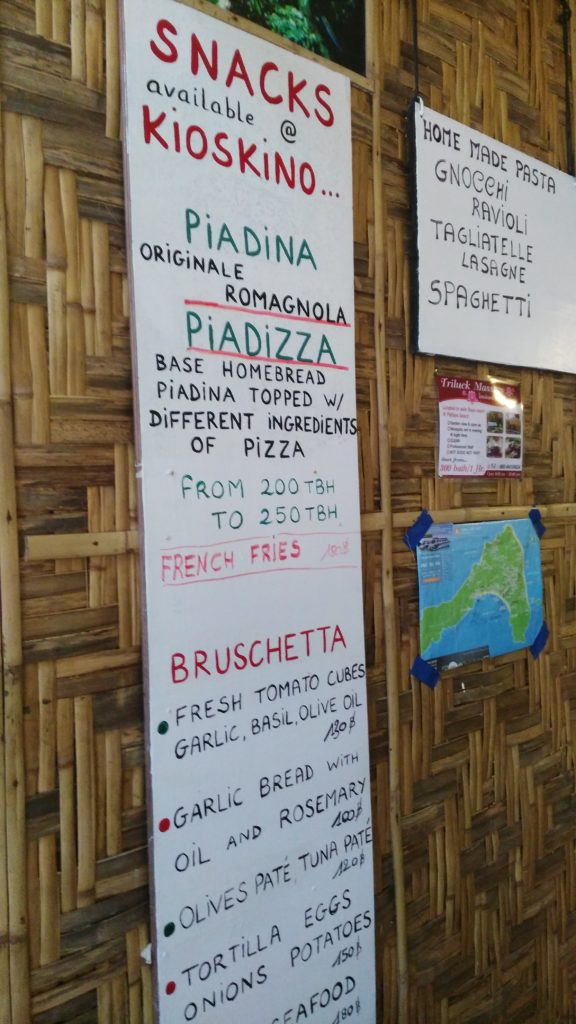 SNACKS
available @
KIOSKINO...
PIADINA
ORIGINALE
ROMAGNOLA
PIADIZZA
BASE HOMEBREAD
PIADINA TOPPED W/
DIFFERENT INGREDIENTS
OF PIZZA
FROM 200 TBH
TO 250 TBH
FRENCH FRIES
BRUSCHETTA
FRESH TOMATO CUBES
GARLIC, BASIL, OLIVE OIL
130฿
GARLIC BREAD WITH
OIL AND ROSEMARY
100฿
OLIVES PATÉ, TUNA PATÉ
120฿
TORTILLA EGGS
ONIONS POTATOES
150฿
SEAFOOD
180฿
HOME MADE PASTA
GNOCCHI
RAVIOLI
TAGLIATELLE
LASAGNE
SPAGHETTI
Triluck
300 bath/1